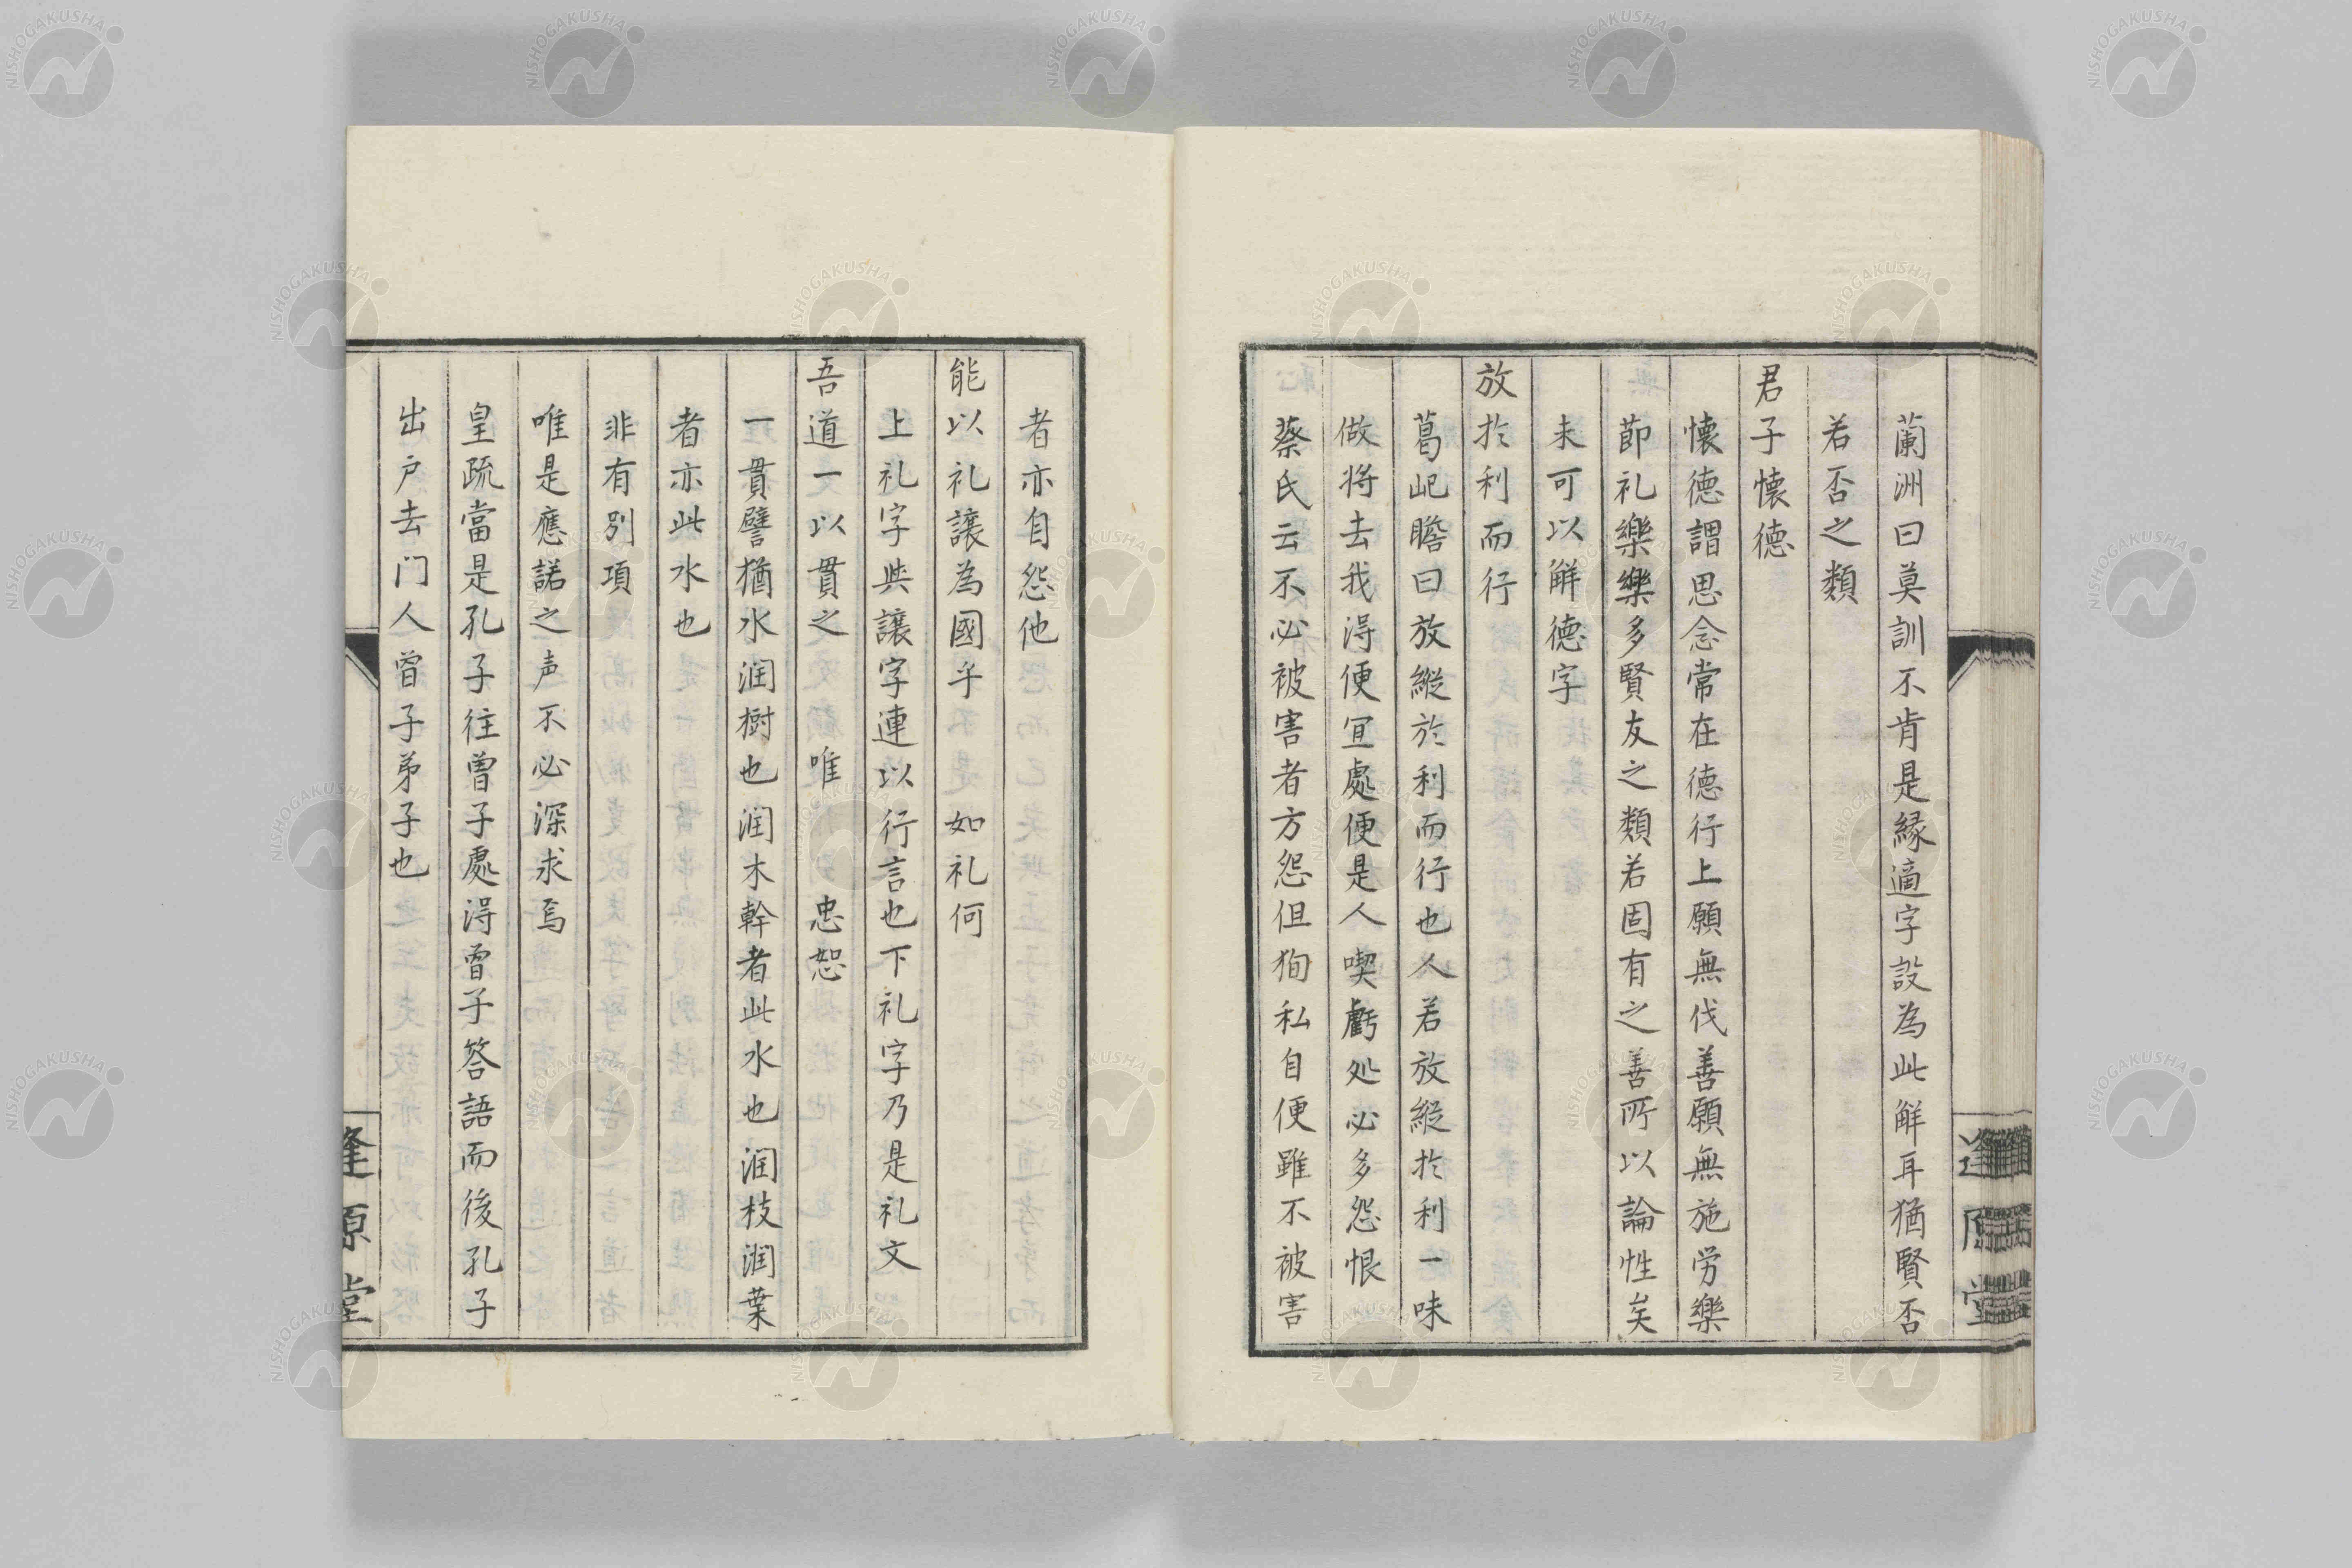 蘭洲曰莫訓不肯是縁適字設為此解耳猶賢否
若否之類
君子懐徳
懐徳謂思念常在徳行上願無伐善願無施労樂
節礼樂樂多賢友之類若固有之善所以論性矣
未可以解徳字
放於利而行
葛屺瞻曰放縦於利而行也人若放縦於利一味
做将去我淂便冝處便是人喫虧処必多怨恨
蔡氏云不必被害者方怨但狥私自便雖不被害
者亦自怨他
能以礼譲為國乎　如礼何
上礼字與譲字連以行言也下礼字乃是礼文
吾道一以貫之　唯　忠恕
一貫譬猶水润樹也润木幹者此水也润枝润葉
者亦此水也
非有別項
唯是應諾之声不必深求焉
皇疏當是孔子往曽子處淂曽子答語而後孔子
出戸去门人曽子弟子也
逢原堂
逢原堂
NISHOGAKUSHA